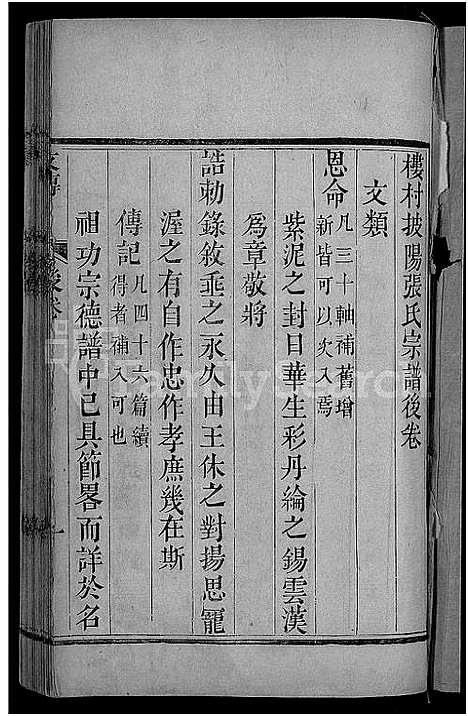 樓村披陽張氏宗譜後卷
文類
恩命凡三十軸補舊增
新皆可以次入焉
紫泥之封日華生彩丹綸之錫雲漢
為章敬將
誥勅錄敘垂之永久由王休之對揚思寵
渥之有自作忠作孝庶幾在斯
傳記凡四十六篇續
得者補入可也
祖功宗德譜中已具節畧而詳於名
一
FamilySearch